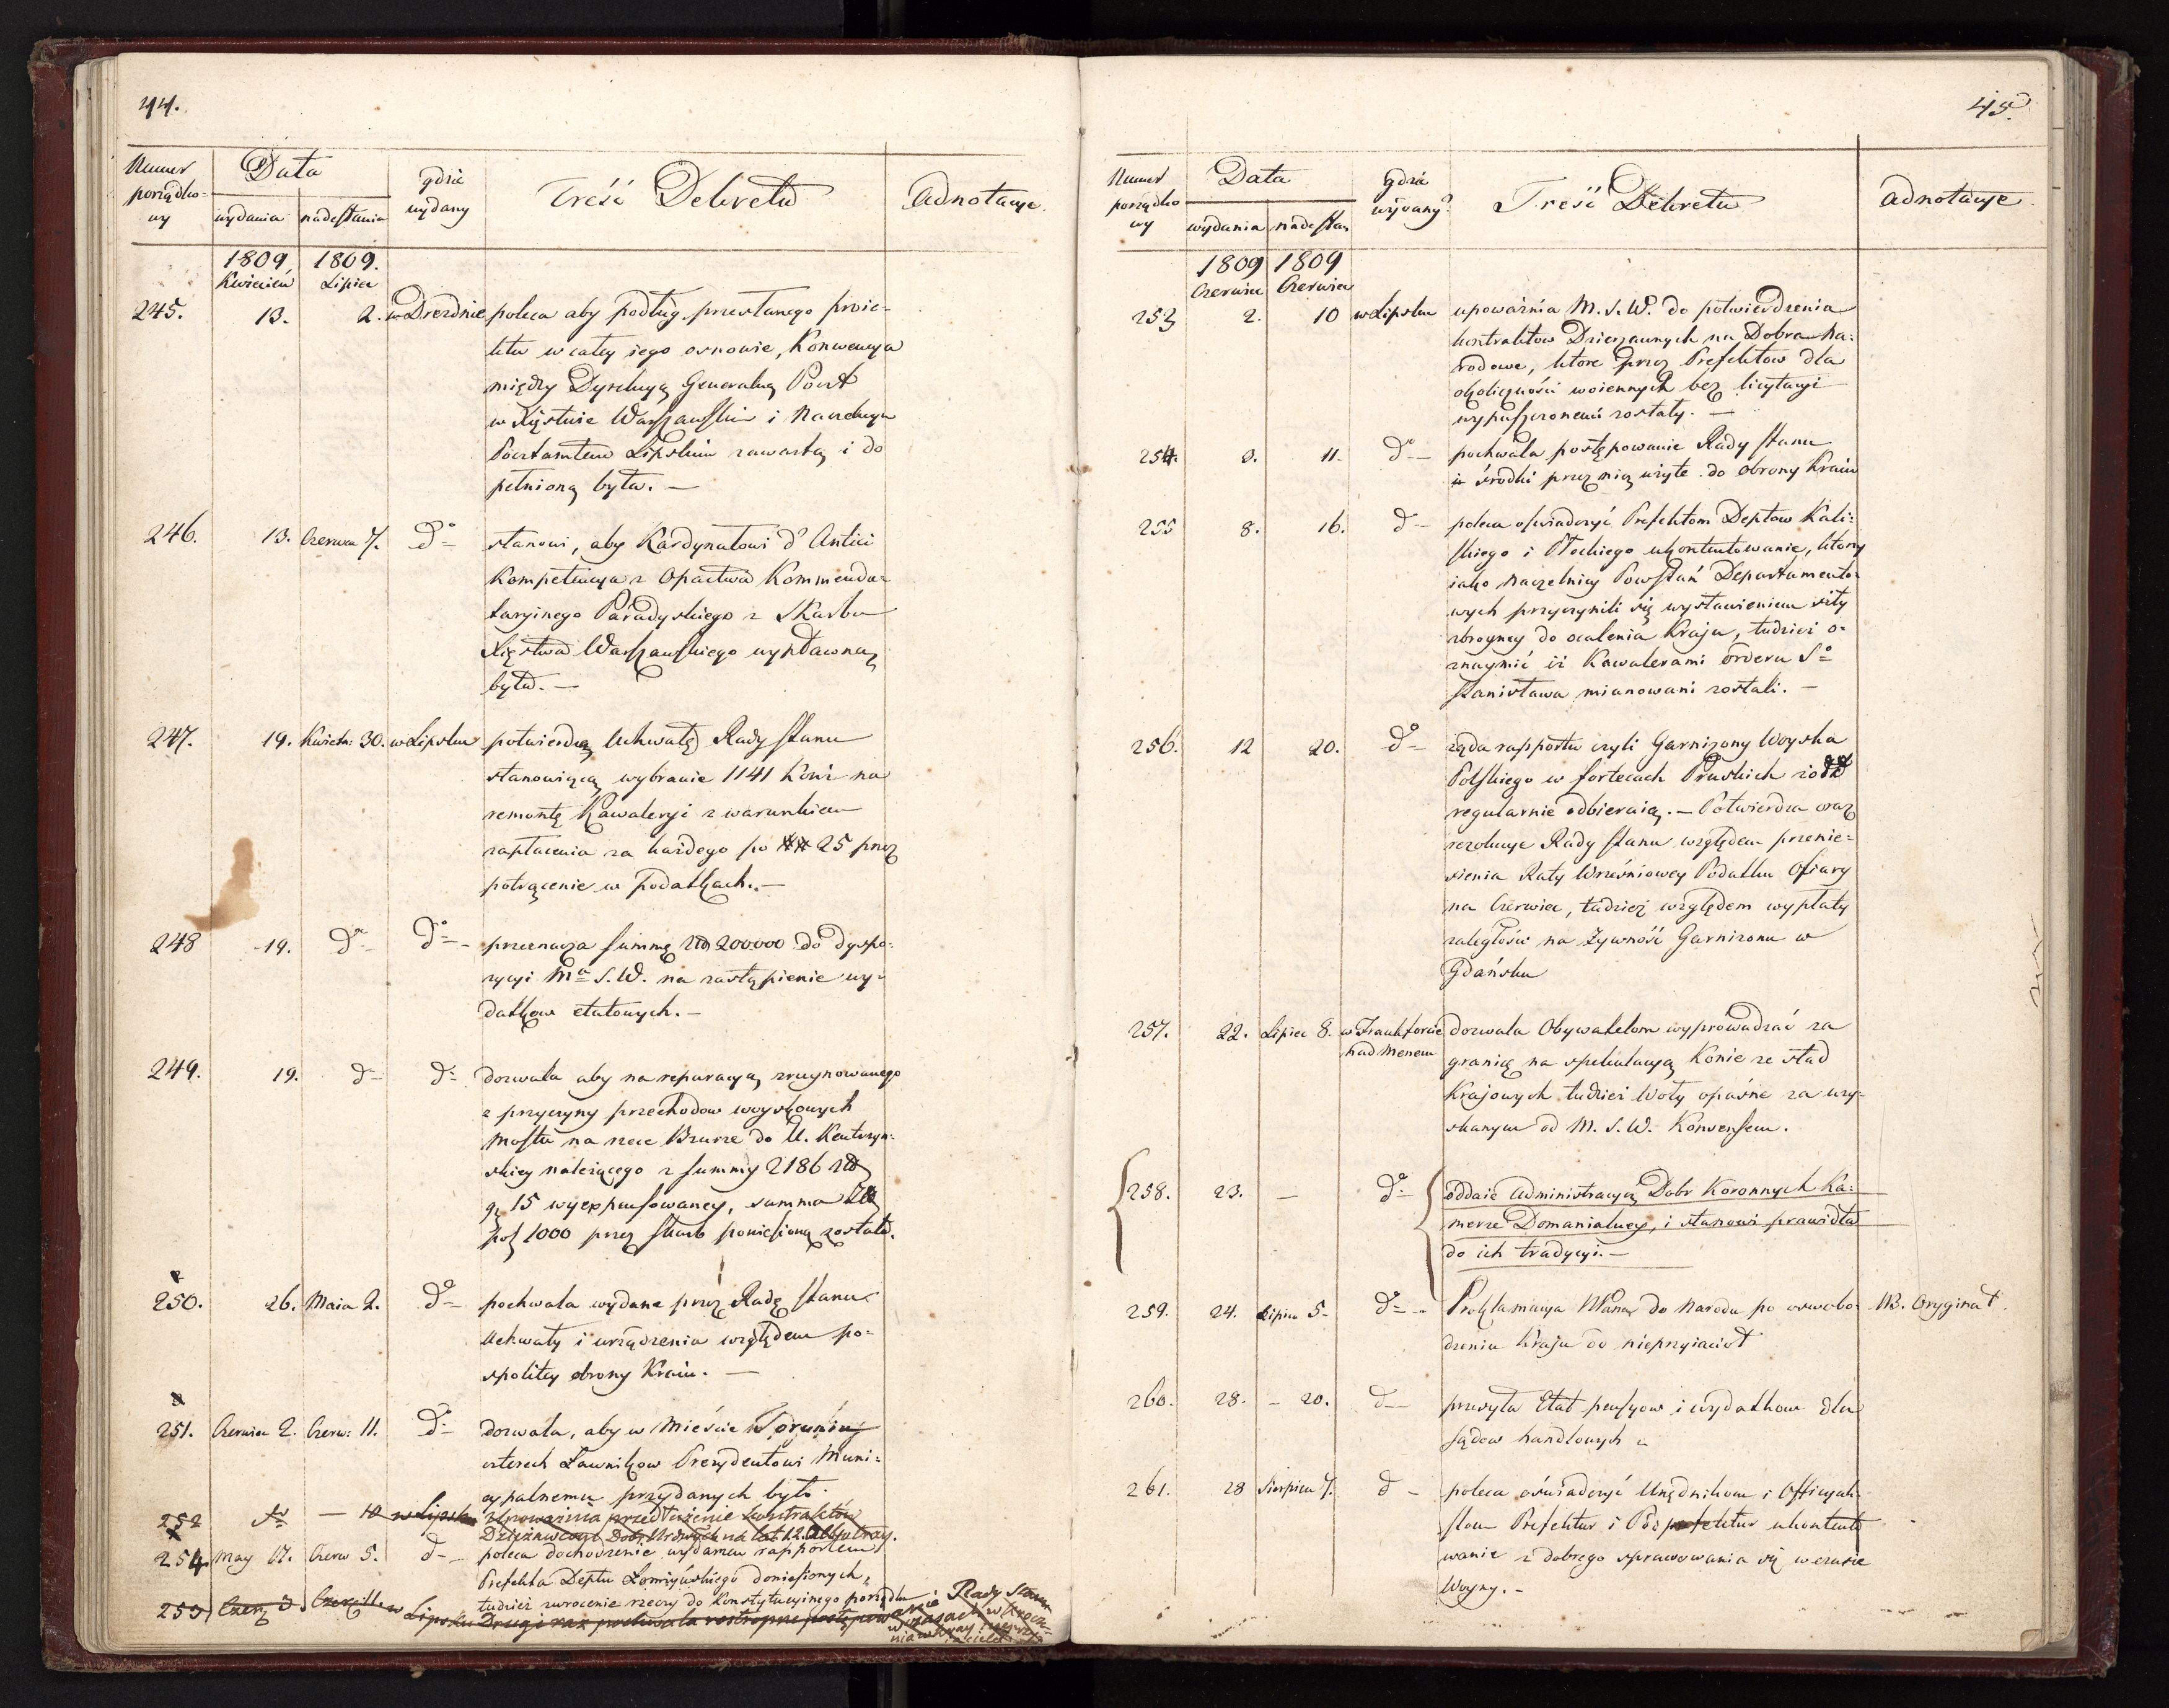 44.
Numer porządko= wy
Data
wydania nadesłania
gdzie wydany
Treść Dekretu
Adnotacye.
1809 1809.
Kwiecień Lipiec
245. 13. 2. w Dreźdnie poleca aby podług przesłanego proie=
ktu w całey iego osnowie, Konwencya
między Dyrekcyą Generalną Poczt
w Xięstwie Warszawskim i Naczelnym
Pocztamtem Lipskim zawartą i do
pełnioną była. —
246. 13. Czerwca 7. do stanowi, aby Kardynałowi d'Antici
Kompetencya z Opactwa Kommenda=
taryinego Paradyskiego z Skarbu
Xięstwa Warszawskiego wypłacaną
była. —
247. 19. Kwietn: 30. w Lipsku potwierdza Uchwałę Rady Stanu
stanowiącą wybranie 1141 Koni na
remontę Kawaleryi z warunkiem
zapłacenia za każdego po ## 25 przez
potrącenie w Podatkach. —
248 19. do do przeznacza summę złp 200000 do dyspo=
zycyi Ma S. W. na zastąpienie wy=
datkow etatowych. —
249. 19. do do dozwala aby na reparacyą zruynowanego
z przyczyny przechodow woyskowych
mostu na rzece Bzurze do U.
skiey należącego z summy 2186 złp
gr 15 wyexpensowaney, summa Złp
pol 1000 przez Skarb poniesioną została.
250. 26. Maia 2. do pochwala wydane przez Radę Stanu
Uchwały i urządzenia względem po=
spolitey obrony Kraiu. —
251. Czerwca 2. Czerw: 11. do dozwala, aby w Mieście Toruniu
czterech Ławnikow Prezydentowi Muni=
cypalnemu przydanych było.
252 do — 10 w Lipsku Upoważnia przedłużenie kontraktów
Dzierżawczych Dobr Nrdwych na lat 12
254 May 17. Czerw 5. do poleca dochodzenie wydarzeń rapportem
Prefekta Deptu Łomżyńskiego doniesionych,
tudzież zwrocenie rzeczy do konstytucyinego porządku
253 Czerw 3. Czerw 11. w Lipsku Drugi raz pochwala roztropne postępowanie Rady Stanu
w czasach

45.
Numer porządko wy
Data
wydania nadesłan
gdzie wydany?
Treść Dekretu
Adnotacye.
1809 1809
Czerwca Czerwca
253 2. 10 w Lipsku upoważnia M. S. W. do potwierdzenia
kontraktow Dzierzawnych na Dobra Na=
rodowe, ktore przez Prefektow dla
okoliczności woiennych bez licytacyi
wypuszczonemi zostały. —
254. 3. 11. do pochwala postępowanie Rady Stanu
i środki przez nią użyte do obrony Kraiu
255 8. 16. do poleca oświadczyć Prefektom Deptow Kali=
skiego i Płockiego ukontentowanie, ktorzy
iako Naczelnicy Powstań Departamento=
wych przyczynili się wystawieniem siły
zbroyney do ocalenia Kraju, tudzież o=
znaymić iż Kawalerami orderu So
Stanisława mianowani zostali. —
256. 12 20. do żąda rapportu czyli Garnizony Woyska
Polskiego w fortecach Pruskich żołd
regularnie odbieraią. — Potwierdza oraz
rezolucye Rady Stanu względem przenie=
sienia Raty Wrześniowey Podatku Ofiary
na Czerwiec, tudzież względem wypłaty
zaległości na żywność Garnizonu w
Gdańsku
257. 22. Lipca 8. w Frankforcie nad Menem dozwala Obywatelom wyprowadzać za
granicę na spekulacyą Konie ze stad
Krajowych tudzież Woły opasne za uzy=
skanym od M. S. W. Konsensem.
258. 23. — do oddaie Administracyą Dobr Koronnych Ka=
merze Domanialney, i stanowi prawidła
do ich tradycyi. —
259. 24. Lipca 5. do Proklamacya do Narodu po oswobo= NB. Oryginał.
dzeniu Kraju od nieprzyiaciół
260. 28. — 20. do przesyła Etat pensyow i wydatkow dla
Sądow handlowych
261. 28 Sierpnia 7. do poleca oświadczyć Urzędnikom i Officyali=
stom Prefektur i Podprefektur ukontento
wanie z dobrego sprawowania się w czasie
Woyny. —